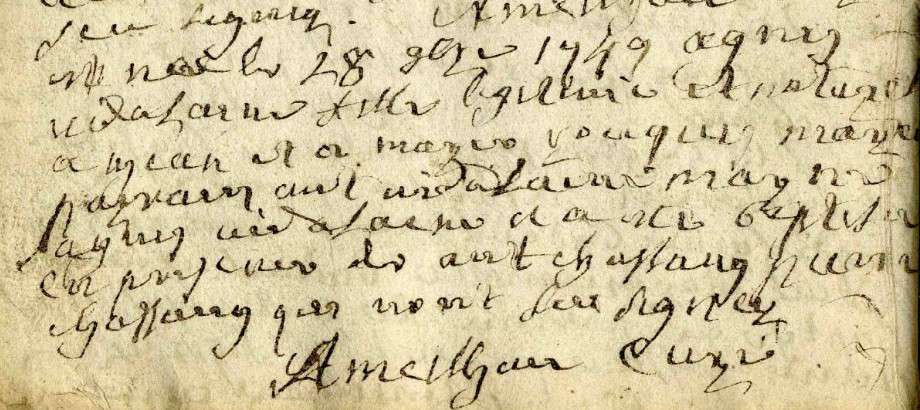 sceu signer. Ameilhau
est née le 28 9bre 1749 agnes
vidalaine fille legitime et naturel
a jean et a marie mariés
parrain ant vidalaine marrine
agnes vidalaine et a été baptisée
en presence de ant chassang
chassang qui n'ont sceu signer
Ameilhau Curé